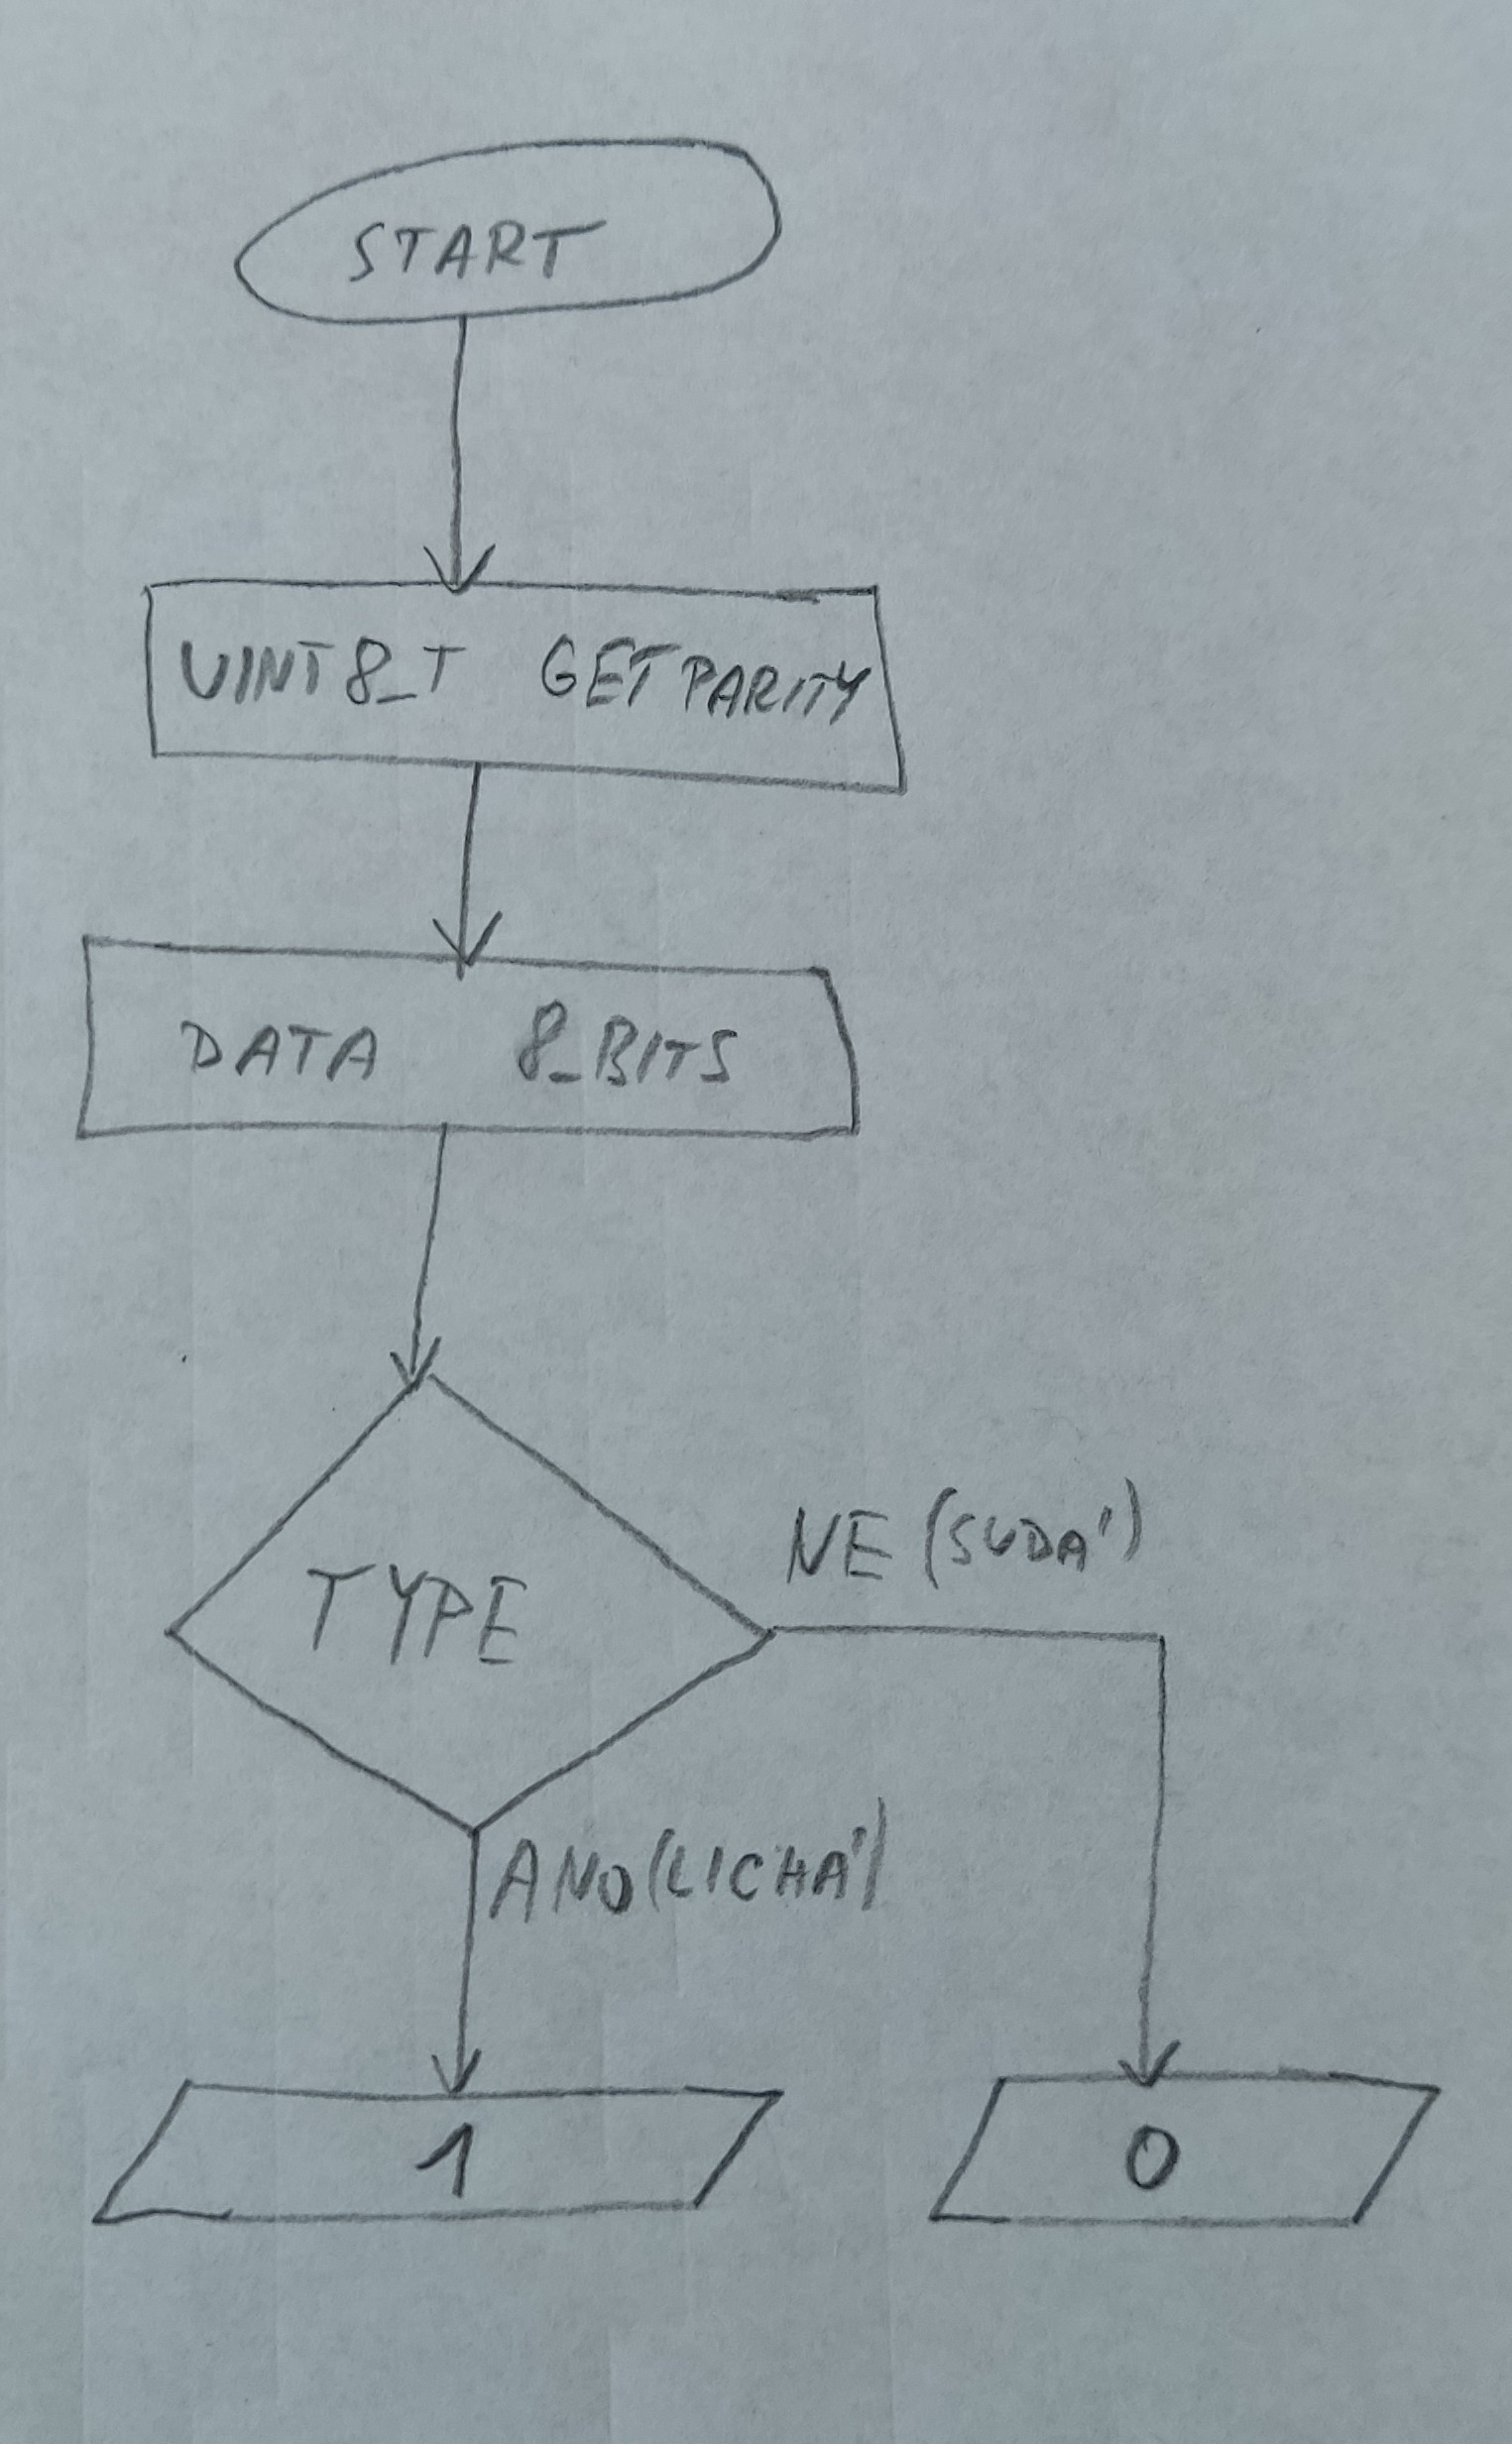 START
UINT8_T GETPARITY
DATA 8_BITS
TYPE
NE (SUDÁ)
ANO (LICHÁ)
1
0